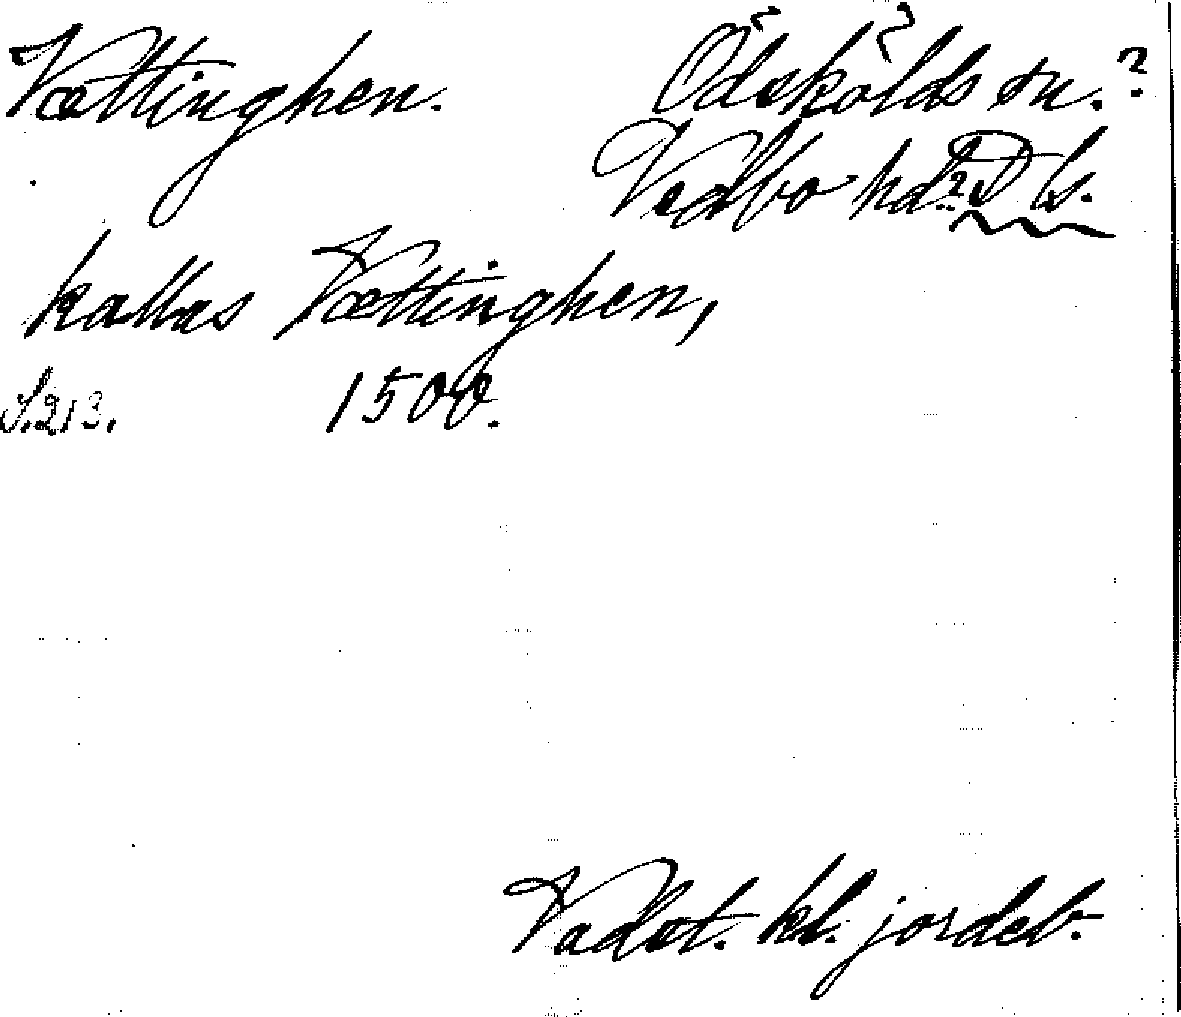 Vættinghen. Ödskölds sn.?
Vedbo hd.? Ds.
kallas Vættinghen,
S. 213. 1500.
Vadst. kl. jordeb.